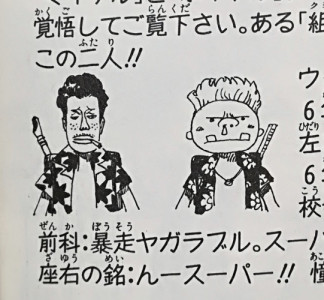 覚悟してご覧下さい。ある「組
この二人!!
ウ
6
左
6
校
前科:暴走ヤガラブル。スーパ
座右の銘:んースーパー!!